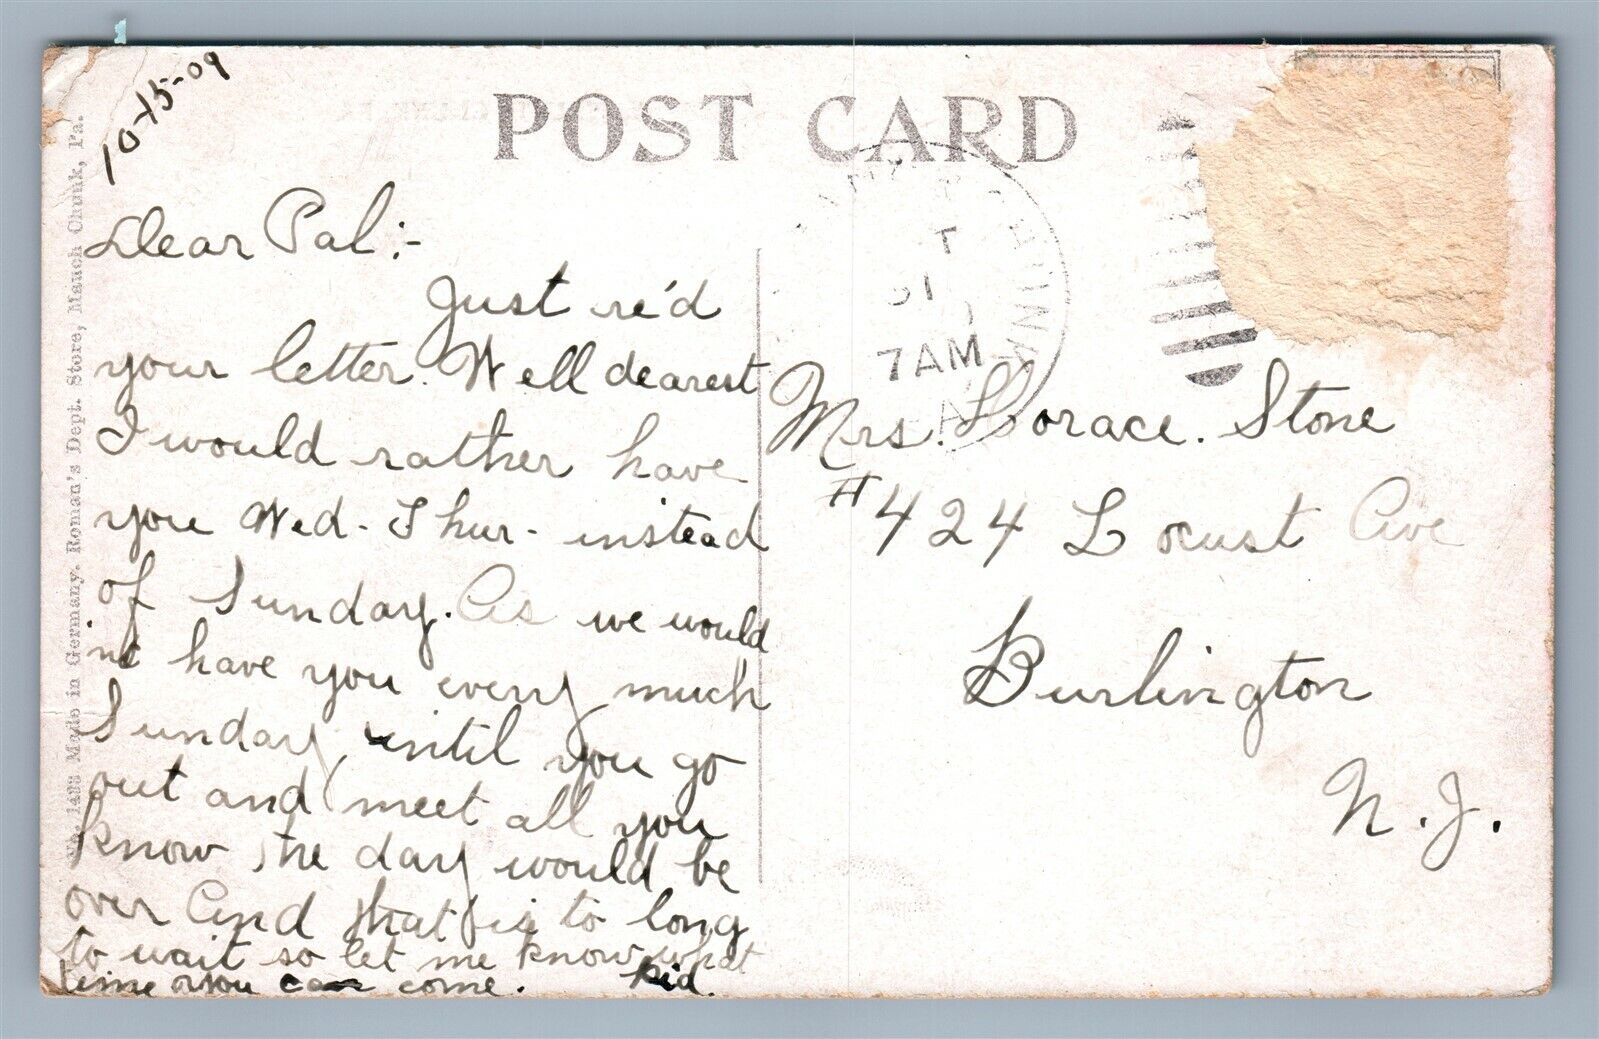 10-15-09
POST CARD
Dear Pal:-
Just re'd
your letter. Well dearest
I would rather have
you Wed- Thur- instead
of Sunday. As we would
n't have you every much
Sunday, until you go
out and meet all you
know, the day would be
over And that is to long
to wait so let me know what
time you can come. Kid.
7 AM
Mrs. Horace. Stone
#424 Locust Ave
Burlington
N. J.
No. 1433 Made in Germany. Roman's Dept. Store, Mauch Chunk, Pa.